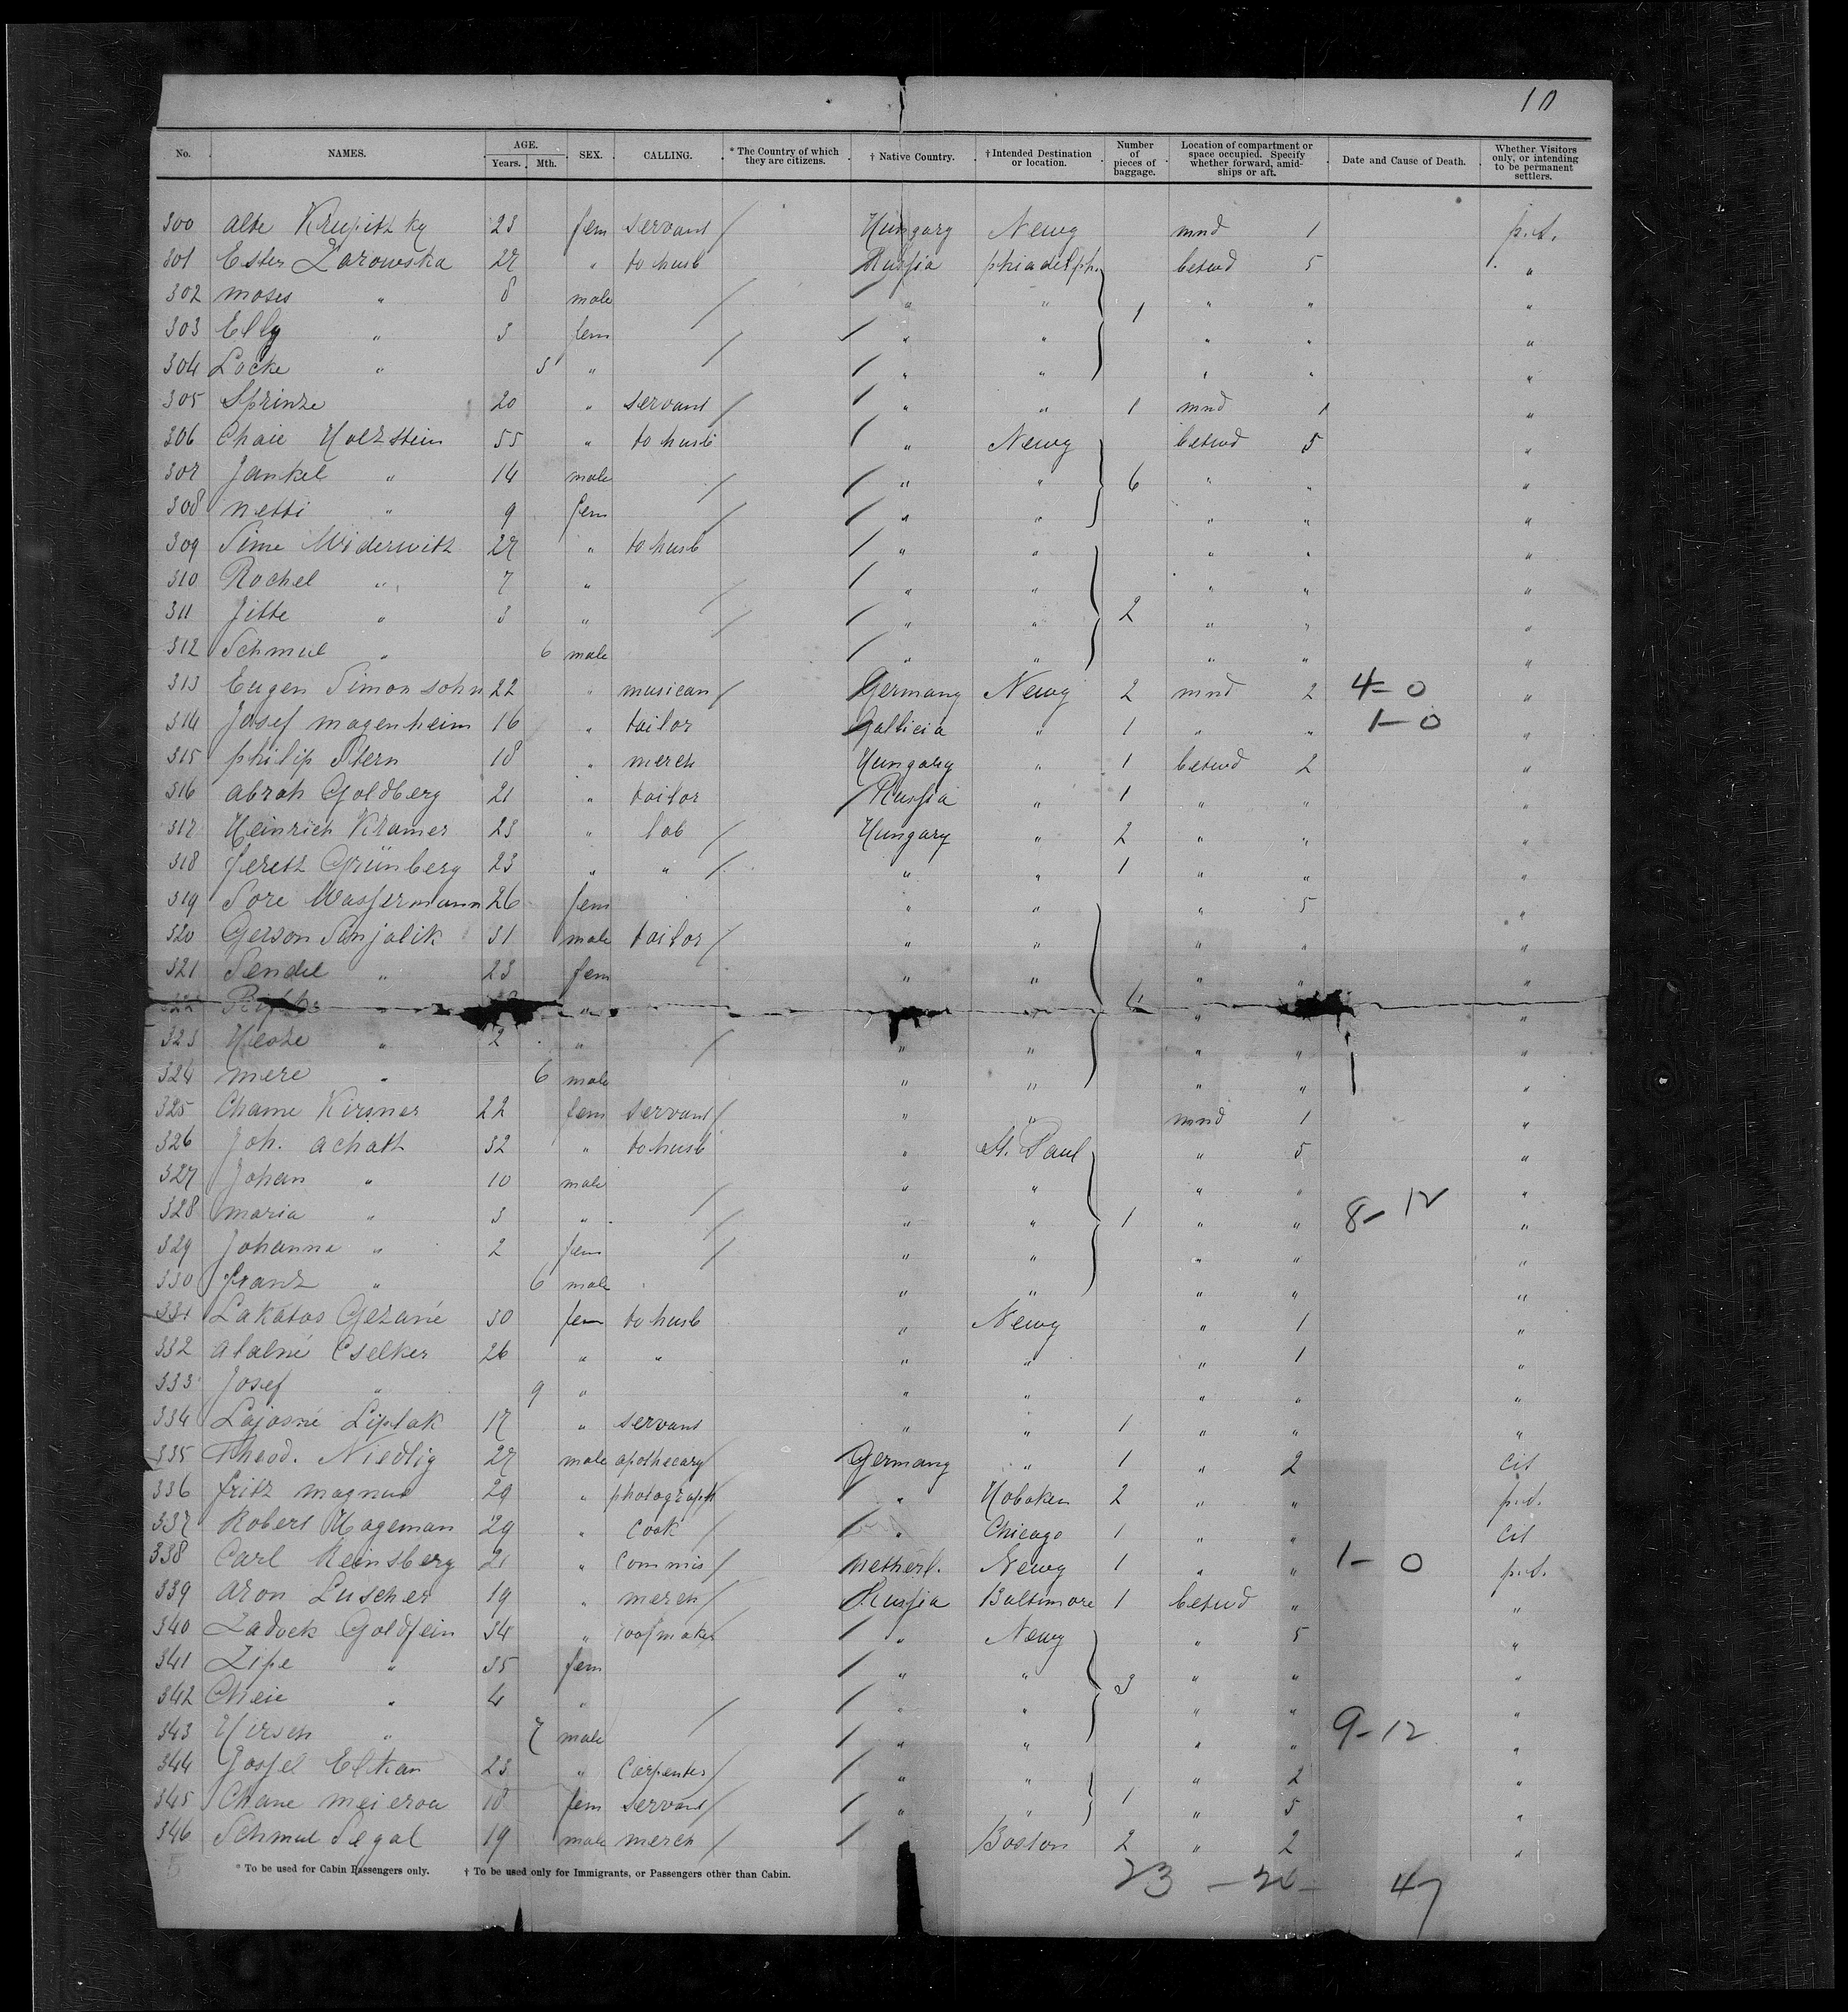 10
No. NAMES. AGE. Years. Mth. SEX. CALLING. * The Country of which they are citizens. † Native Country. † Intended Destination or location. Number of pieces of baggage. Location of compartment or space occupied. Specify whether forward, amidships or aft. Date and Cause of Death. Whether Visitors only, or intending to be permanent settlers.
300 Alte Krupitzky 23 fem servant / Hungary Newy mnd 1 p.s.
301 Ester Zarowska 27 " to husb Russia phiadelph. betwd 5 "
302 moses " 8 male / / " " 1 " " "
303 Elly " 3 fem / / " " " " "
304 Locke " 5 " / " " " " "
305 Sprinze 20 " servant / / " " 1 mnd 1 "
306 Chaie Holzstein 55 " to husb / " Newy betwd 5 "
307 Jankel " 14 male / / " " 6 " " "
308 netti " 9 fem / / " " " " "
309 Sime Widerwitz 27 " to husb / " " " " "
310 Rochel " 7 " / / " " " " "
311 Jitte " 3 " / / " " 2 " " "
312 Schmul " 6 male / " " " " "
313 Eugen Simonsohn 22 " musican / Germany Newy 2 mnd 2 4-0 "
314 Josef magenheim 16 " tailor Gallicia " 1 " " 1-0 "
315 philip Stern 18 " merch Hungary " 1 betwd 2 "
316 abrah Goldberg 21 " tailor / Russia " 1 " " "
317 Heinrich Kramer 23 " lab / Hungary " 2 " " "
318 feretz Grünberg 23 " " / " " 1 " " "
319 Sore Wassermann 26 fem " " " 5 "
320 Gerson Sanjalik 31 male tailor / " " " " "
321 Sendel " 23 fem " " " " "
322 " " " "
323 " 2 " / " " " " "
324 mere " 6 male " " " " "
325 Chame Kirsner 22 fem servant / " " mnd 1 "
326 Joh. achatz 32 " to husb " St. Paul " 5 "
327 Johan " 10 male " " " " "
328 maria " 3 " / " " 1 " " 8-12 "
329 Johanna " 2 fem / " " " " "
330 franz " 6 male " " " " "
331 Lakatos Gezané 30 fem to husb " Newy " 1 "
332 Cselker 26 " " " " " 1 "
333 Josef " 9 " " " " " "
334 Lajosné Liptak 17 " servant " " 1 " " "
335 Theod. Niedlig 27 male apothecary / Germany " 1 " 2 cit
336 fritz magnus 29 " photograph / " Hoboken 2 " " p.s.
337 Robert Hageman 29 " cook / / " Chicago 1 " " cit
338 Carl Reinsberg 21 " commis / netherl. Newy 1 " " 1-0 p.s.
339 aron Luscher 19 " merch / Russia Baltimore 1 betwd " "
340 Zadock Goldfein 34 " / " Newy " 5 "
341 Zipe " 35 fem / " " 3 " " "
342 Cheie " 4 " / / " " " " "
343 Hirsch " 7 male / " " " " 9-12 "
344 Jossel Elkan 23 " carpenter / / " " " 2 "
345 Chane meierou 18 fem servant / / " " 1 " 5 "
346 Schmul Segal 19 male merch / / Boston 2 " 2 "
* To be used for Cabin Passengers only. † To be used only for Immigrants, or Passengers other than Cabin.
23 - 26 - 47